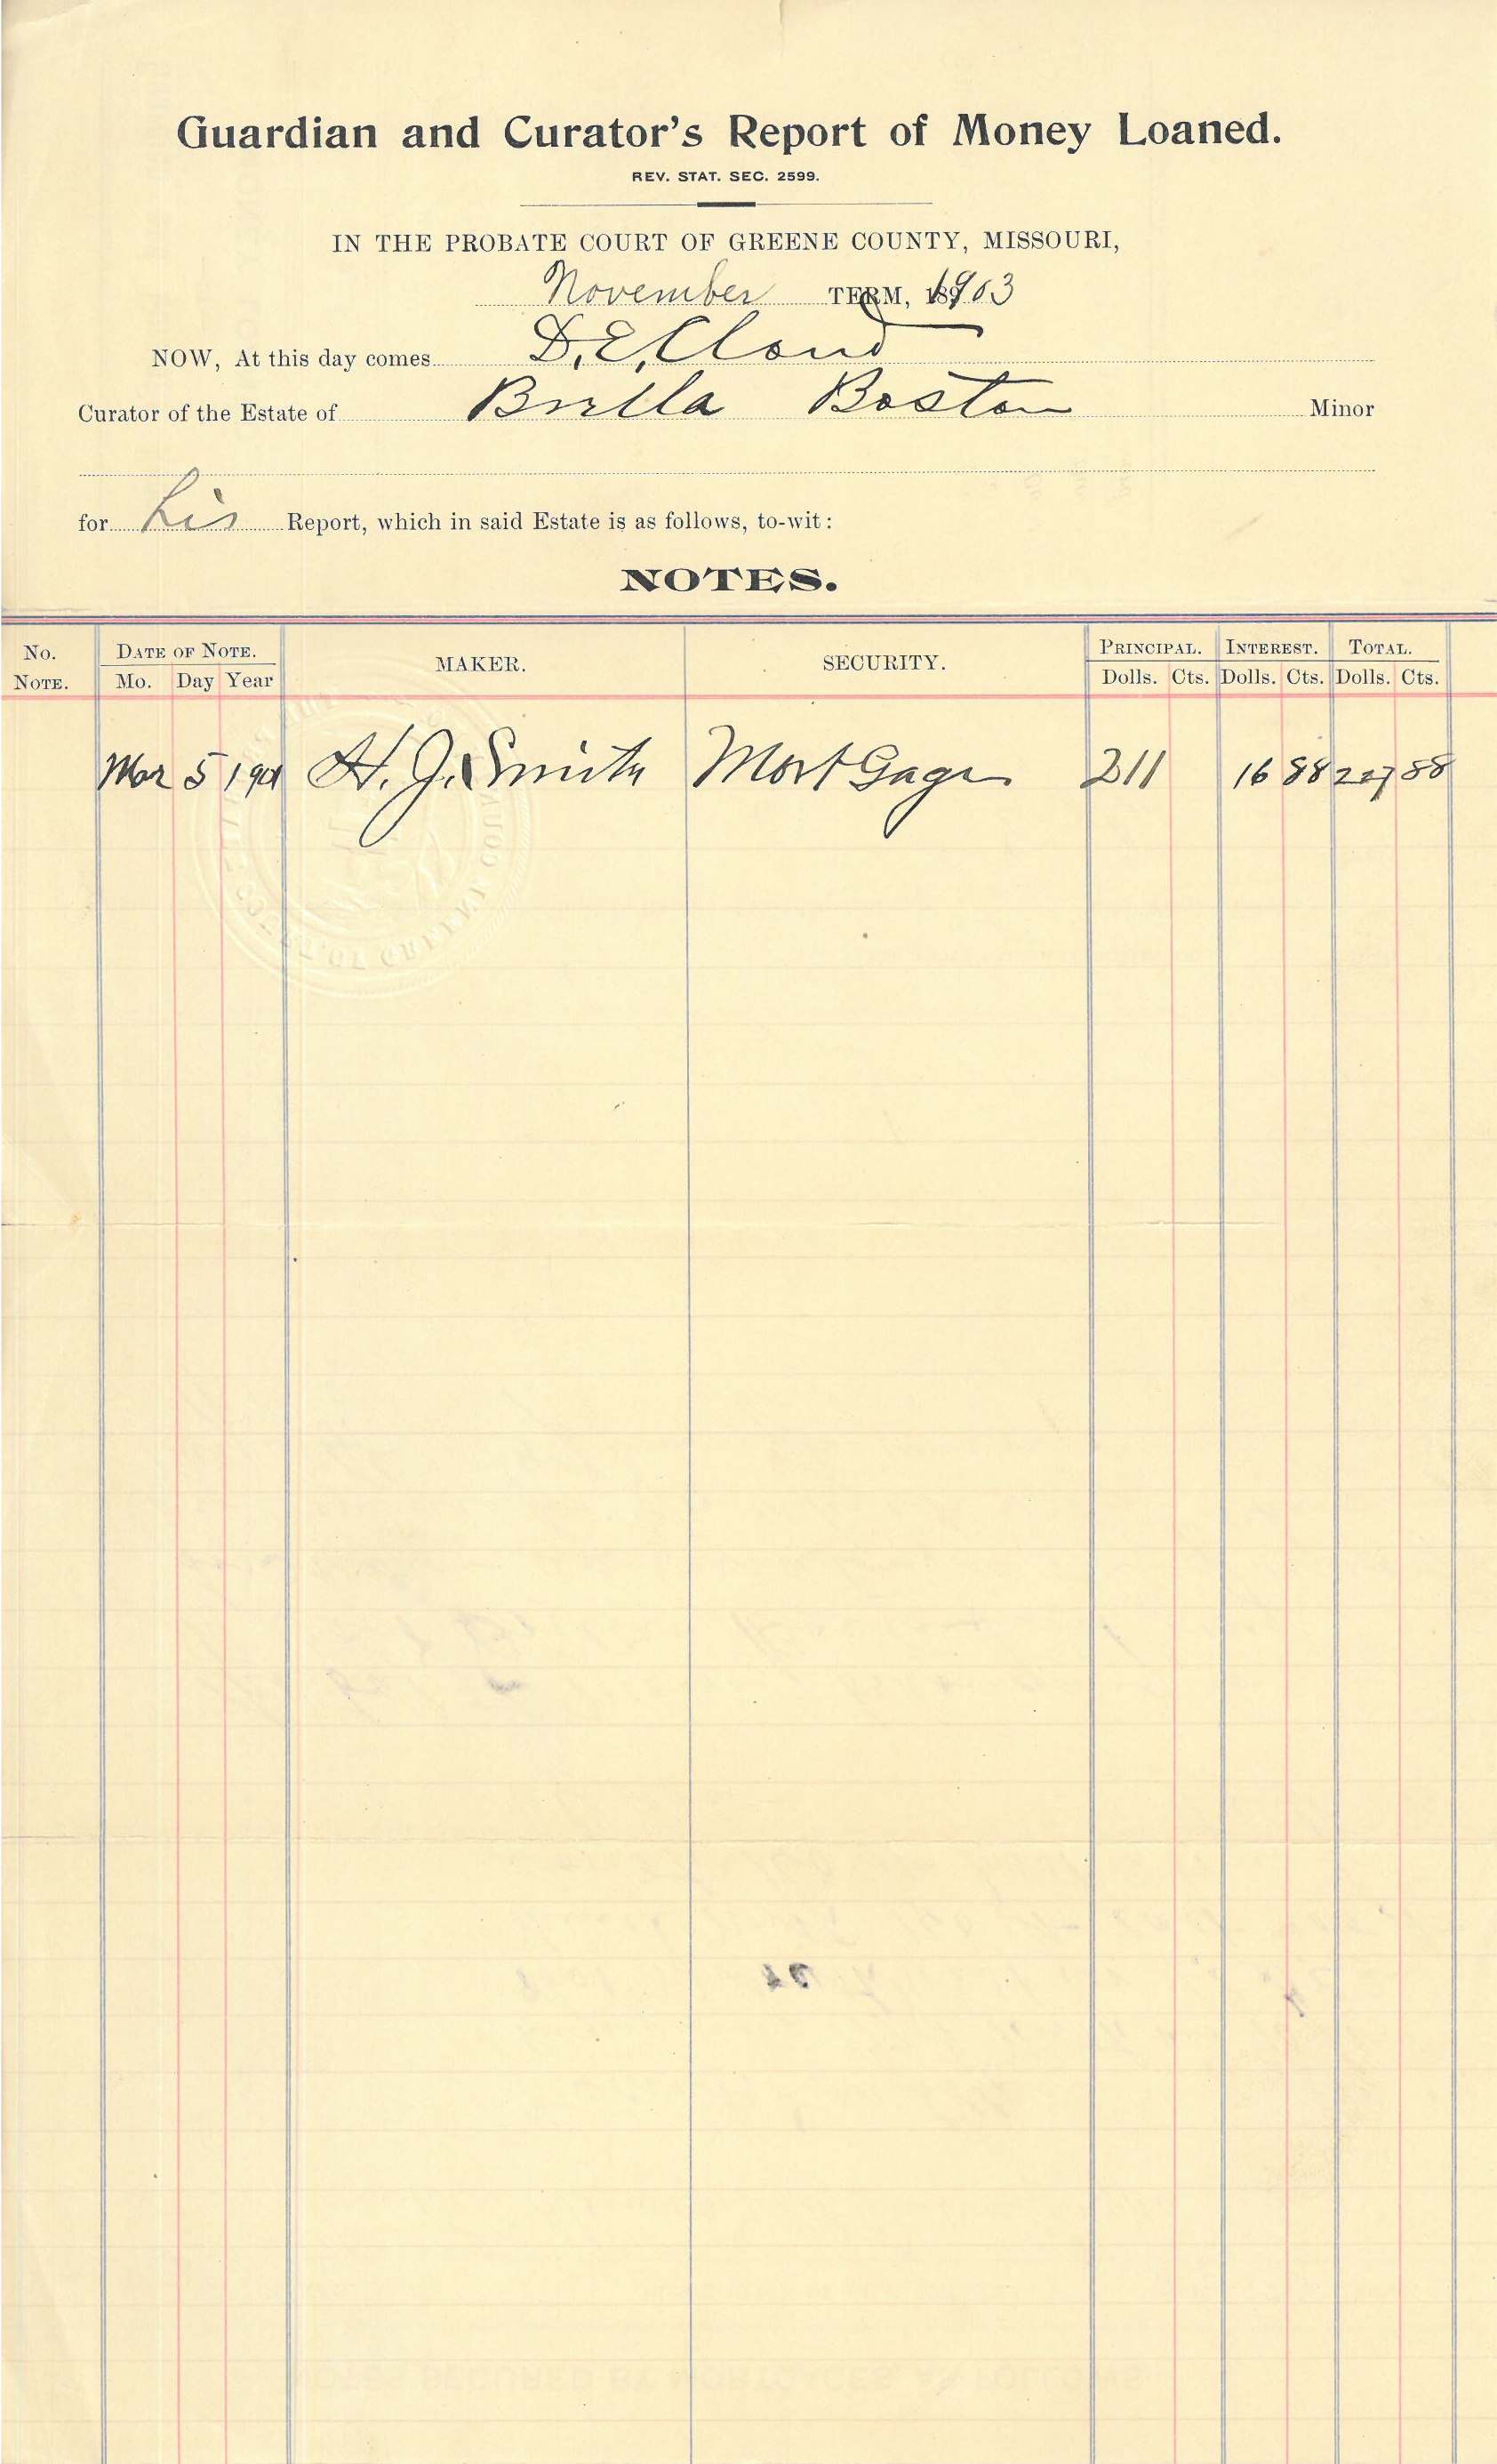 Guardian and Curator's Report of Money Loaned.
REV. STAT. SEC. 2599.
IN THE PROBATE COURT OF GREENE COUNTY, MISSOURI,
November TERM, 1903
NOW, At this day comes D. E. Cloud
Curator of the Estate of Boston Minor
for his Report, which in said Estate is as follows, to-wit:
NOTES.
No. NOTE. DATE OF NOTE. Mo. Day Year MAKER. SECURITY. PRINCIPAL. Dolls. Cts. INTEREST. Dolls. Cts. TOTAL. Dolls. Cts.
Mar 5 1901 H. J. Smith MortGage 211 16 88 227 88